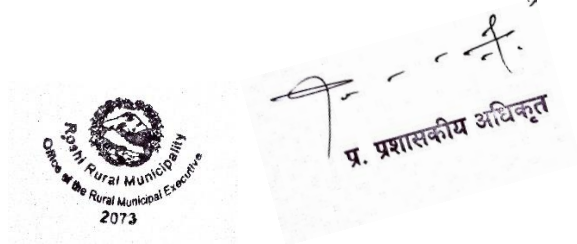 Roshi Rural Municipality
Office of the Rural Municipal Executive
2073
प्र. प्रशासकीय अधिकृत